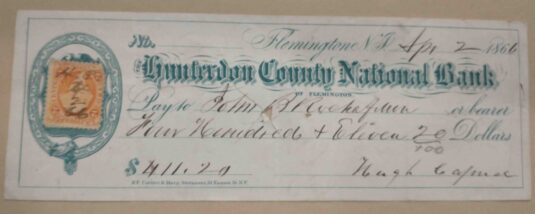 No. Flemington N.J. Apr 2 1866
The Hunterdon County National Bank
OF FLEMINGTON
Pay to John B. or bearer
Four Hundred & Eleven 20/100 Dollars
$ 411.20 Hugh